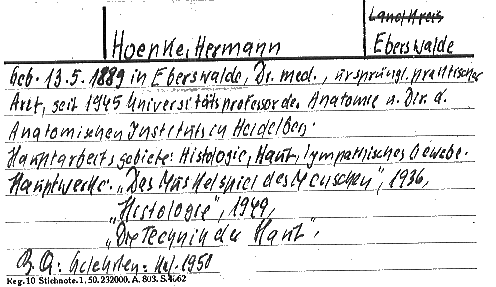 Land Kreis
Hoenke, Hermann
Eberswalde
Geb. 13.5.1889 in Eberswalde, Dr. med., ursprüngl. praktischer
Arzt, seit 1945 Universitätsprofessor der Anatomie u. Dir. d.
Anatomischen Instituts in Heidelber.
Hauptarbeitsgebiete: Histologie, Haut, lymphatisches Gewebe.
Hauptwerke: „Das Muskelspiel des Menschen", 1936,
„Histologie", 1949,
„Die Technik der Haut",
Gelehrten-Kal. 1950
Keg. 10 Stichnote. 1, 50. 232000. A. 803. S. 4662